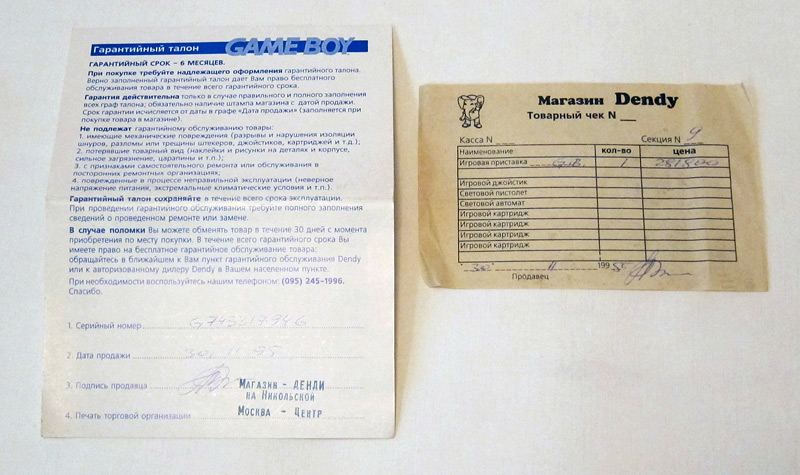 Гарантийный талон GAME BOY
ГАРАНТИЙНЫЙ СРОК – 6 МЕСЯЦЕВ.
При покупке требуйте надлежащего оформления гарантийного талона.
Верно заполненный гарантийный талон дает Вам право бесплатного
обслуживания товара в течение всего гарантийного срока.
Гарантия действительна только в случае правильного и полного заполнения
всех граф талона; обязательно наличие штампа магазина с датой продажи.
Срок гарантии исчисляется от даты в графе «Дата продажи» (заполняется при
покупке товара в магазине).
Не подлежат гарантийному обслуживанию товары:
1. имеющие механические повреждения (разрывы и нарушения изоляции
шнуров, разломы или трещины штекеров, джойстиков, картриджей и т.д.);
2. потерявшие товарный вид (наклейки и рисунки на деталях и корпусе,
сильное загрязнение, царапины и т.п.);
3. с признаками самостоятельного ремонта или обслуживания в
посторонних ремонтных организациях;
4. поврежденные в процессе неправильной эксплуатации (неверное
напряжение питания, экстремальные климатические условия и т.п.).
Гарантийный талон сохраняйте в течение всего срока эксплуатации.
При проведении гарантийного обслуживания требуйте полного заполнения
сведений о проведенном ремонте или замене.
В случае поломки Вы можете обменять товар в течение 30 дней с момента
приобретения по месту покупки. В течение всего гарантийного срока Вы
имеете право на бесплатное гарантийное обслуживание товара:
обращайтесь в ближайшем к Вам пункт гарантийного обслуживания Dendy
или к авторизованному дилеру Dendy в Вашем населенном пункте.
При необходимости воспользуйтесь нашим телефоном: (095) 245-1996.
Спасибо.
1. Серийный номер
2. Дата продажи
3. Подпись продавца
Магазин - ДЕНДИ
на Никольской
4. Печать торговой организации
Москва - Центр
Магазин Dendy
Товарный чек N
Касса N Секция N 9
Наименование кол-во цена
Игровая приставка G.B. 1
Игровой джойстик
Световой пистолет
Световой автомат
Игровой картридж
Игровой картридж
Игровой картридж
Игровой картридж
"30" 11 1995
Продавец